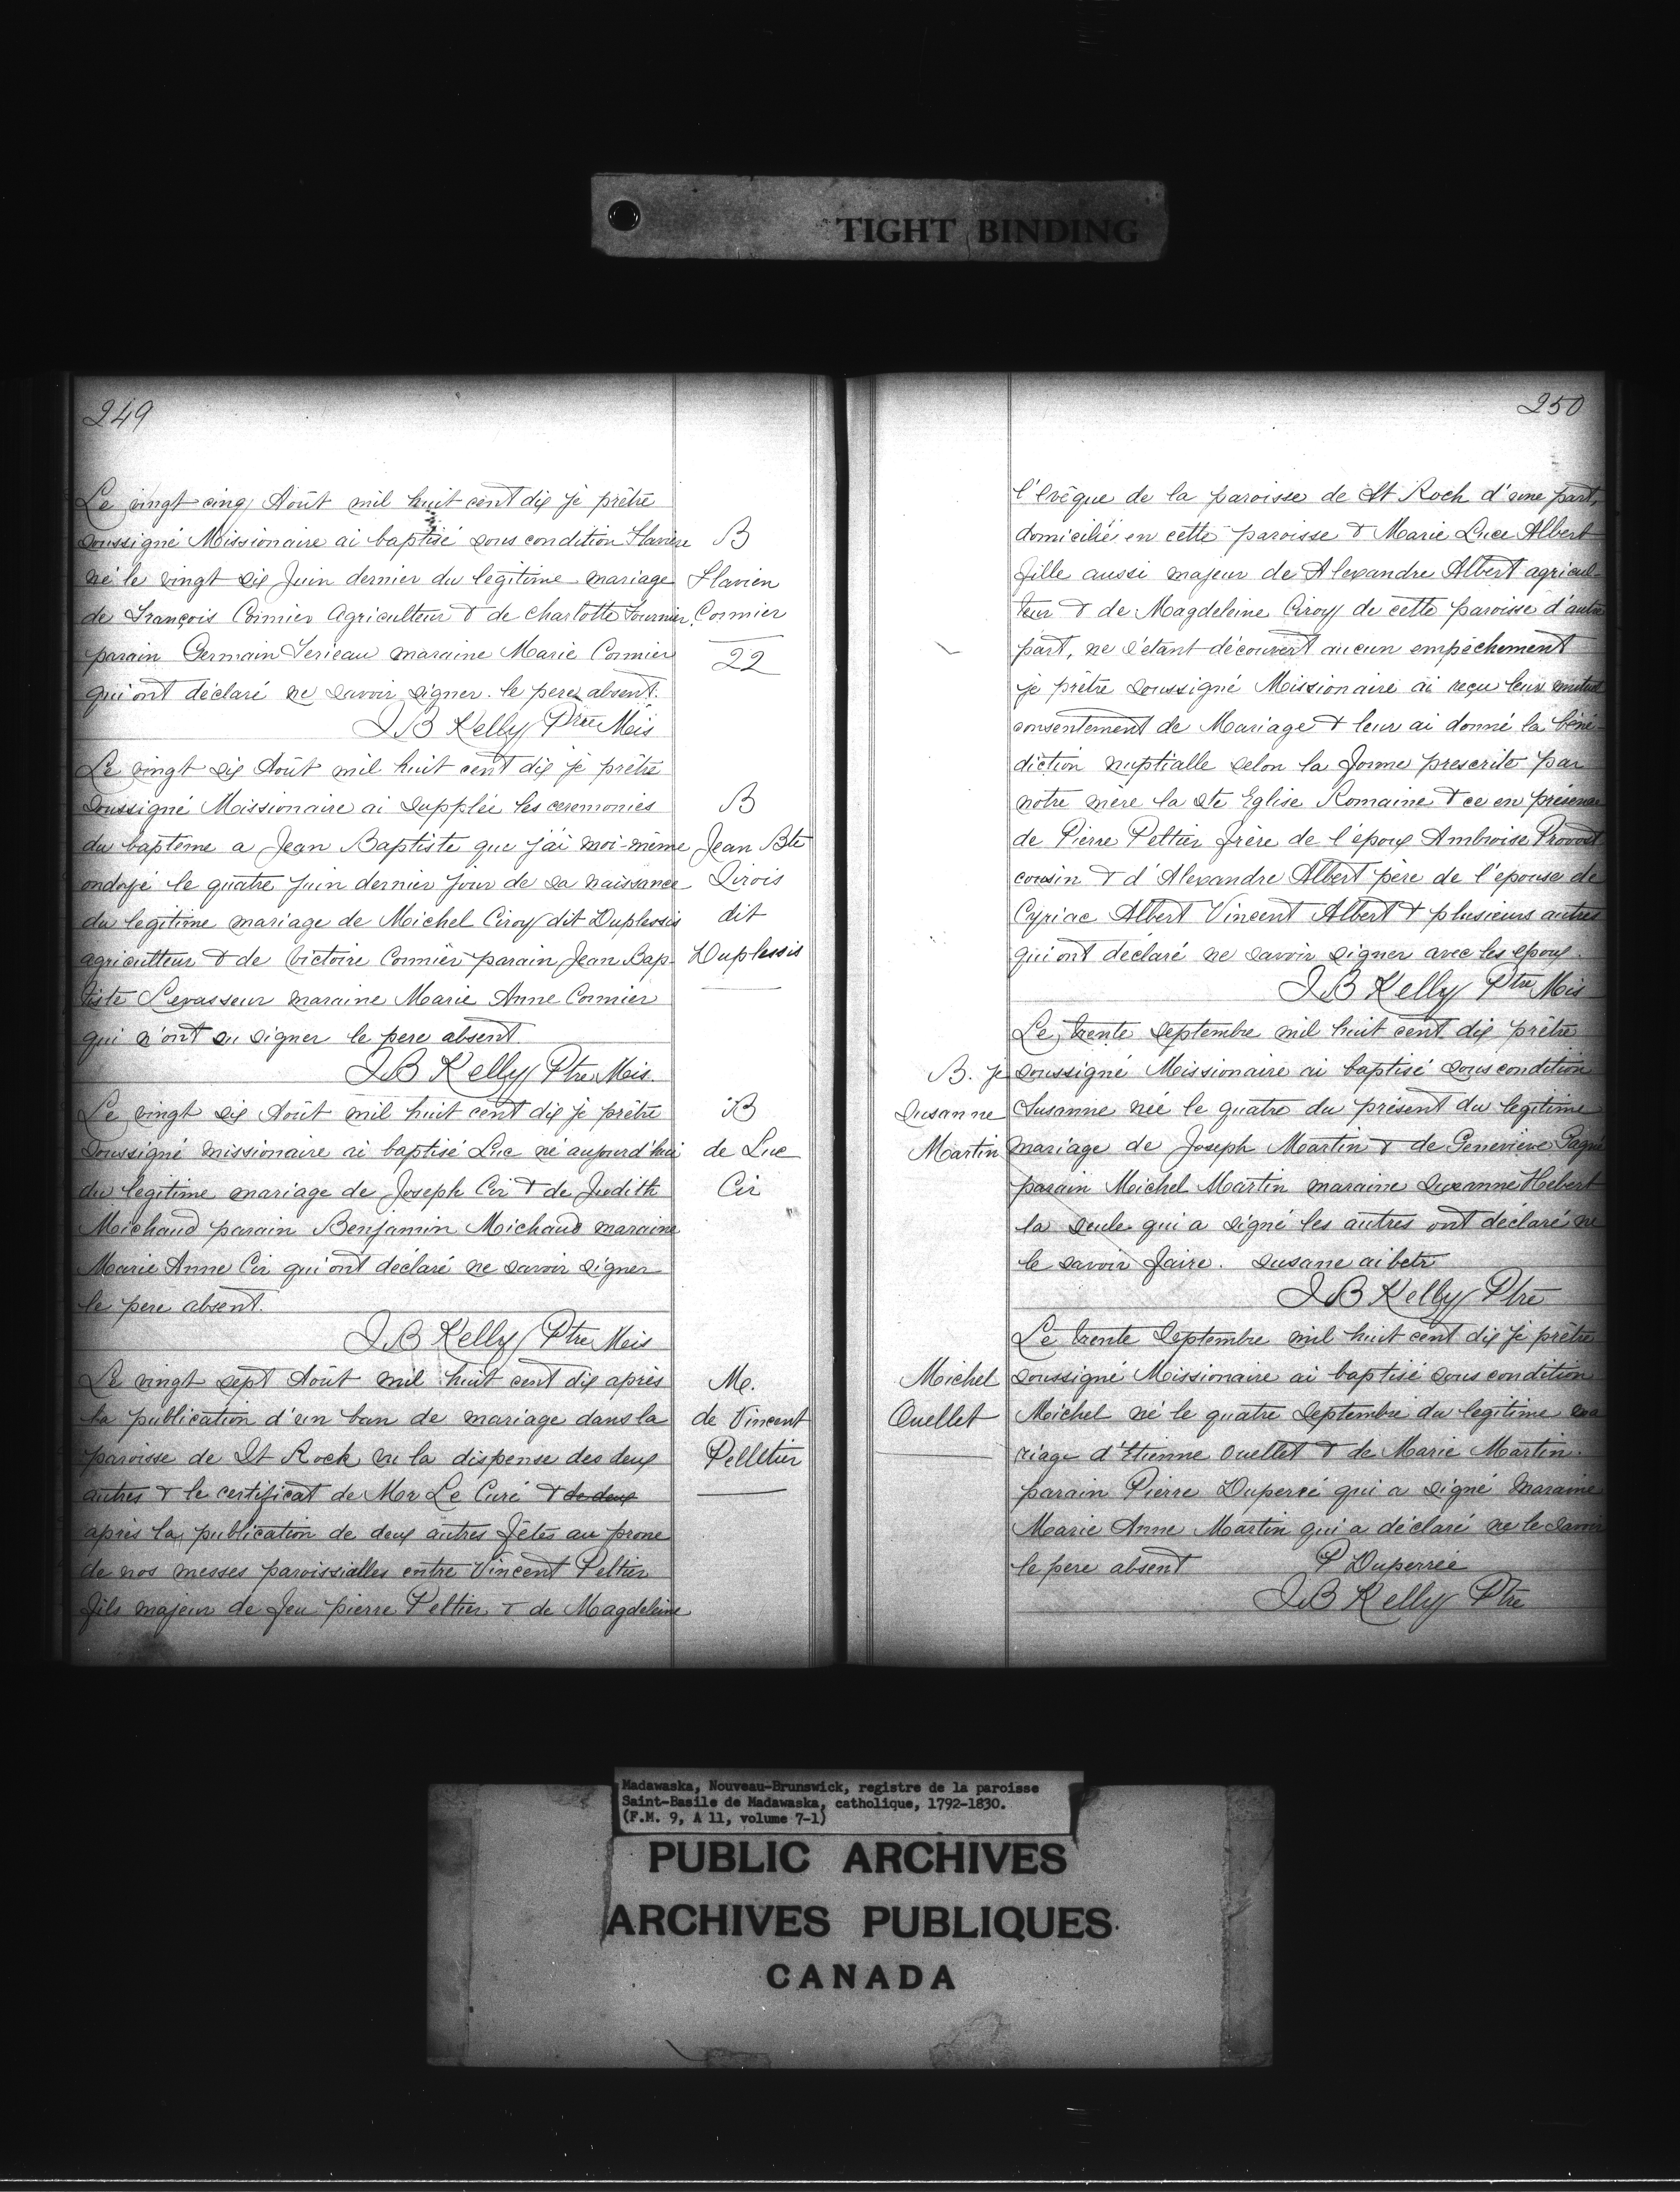 TIGHT BINDING
249
Le vingt cinq Août mil huit cent dix je prêtre
soussigné Missionaire ai baptisé sous condition Flaviere
né le vingt six Juin dernier du legitime mariage
de François Cormier Agriculteur & de Charlotte Fournier
parain Germain Serieau maraine Marie Cormier
qui ont déclaré ne savoir signer. le pere absent.
J B Kelly Ptre Mis
B
Flavien
Cormier
22
Le vingt six Août mil huit cent dix je prêtre
soussigné Missionaire ai supplée les ceremonies
du baptême a Jean Baptiste que j'ai moi-même
ondoyé le quatre Juin dernier jour de sa naissance
du legitime mariage de Michel Ciroy dit Duplessis
agriculteur & de Victoire Cormier parain Jean Bap-
tiste Levasseur maraine Marie Anne Cormier
qui n'ont su signer le pere absent.
J B Kelly Ptre Mis.
B
Jean Bte
Sirois
dit
Duplessis
Le vingt six Août mil huit cent dix je prêtre
soussigné missionaire ai baptisé Luc né aujourd'hui
du legitime mariage de Joseph Cir & de Judith
Michaud parain Benjamin Michaud maraine
Marie Anne Cir qui ont déclaré ne savoir signer
le pere absent.
J B Kelly Ptre Mis
B
de Luc
Cir
Le vingt sept Août mil huit cent dix après
la publication d'un ban de mariage dans la
paroisse de St Rock vu la dispense des deux
autres & le certificat de Mor Le Curé & de deux
après la publication de deux autres fêtes au prone
de nos messes paroissialles entre Vincent Peltier
fils majeur de feu pierre Peltier & de Magdeleine
M.
de Vincent
Pelletier
250
l'Evêque de la paroisse de St Roch d'une part,
domicilié en cette paroisse & Marie Luce Albert
fille aussi majeur de Alexandre Albert agricul-
teur & de Magdeleine Ciroy de cette paroisse d'autre
part, ne s'étant découvert aucun empêchement
je prêtre soussigné Missionaire ai reçu leur mutuel
consentement de Mariage & leur ai donné la béné-
diction nuptialle selon la forme prescrite par
notre mère la Ste Eglise Romaine & ce en présence
de Pierre Peltier frère de l'époux Ambroise Provost
cousin & d'Alexandre Albert père de l'épouse de
Cyriac Albert Vincent Albert & plusieurs autres
qui ont déclaré ne savoir signer avec les epoux.
J B Kelly Ptre Mis
Le trente Septembre mil huit cent dix prêtre
B. je soussigné Missionaire ai baptisé sous condition
Susanne Susanne née le quatre du présent du legitime
Martin mariage de Joseph Martin & de Genevieve Gagné
parain Michel Martin maraine Suzanne Hebert
la seule qui a signé les autres ont déclaré ne
le savoir faire. Susane aibetr
J B Kelly Ptre
Le trente Septembre mil huit cent dix je prêtre
Michel soussigné Missionaire ai baptisé sous condition
Ouellet Michel né le quatre Septembre du legitime ma
riage d'Etienne Ouellet & de Marie Martin.
parain Pierre Duperré qui a signé maraine
Marie Anne Martin qui a déclaré ne le savoir
le pere absent P Duperrée
J B Kelly Ptre
Madawaska, Nouveau-Brunswick, registre de la paroisse
Saint-Basile de Madawaska, catholique, 1792-1830.
(F.M. 9, A 11, volume 7-1)
PUBLIC ARCHIVES
ARCHIVES PUBLIQUES
CANADA